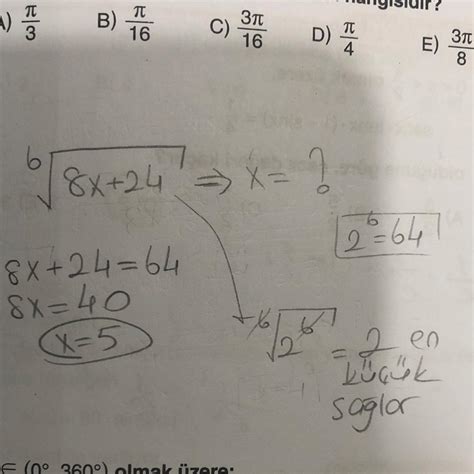 hangisidir?
A) π/3 B) π/16 C) 3π/16 D) π/4 E) 3π/8
⁶√8x+24 ⇒ x = ?
2⁶=64
8x+24=64
8x=40
x=5
⁶√2⁶ = 2 en
küçük
sağlar
∈ (0°, 360°) olmak üzere;